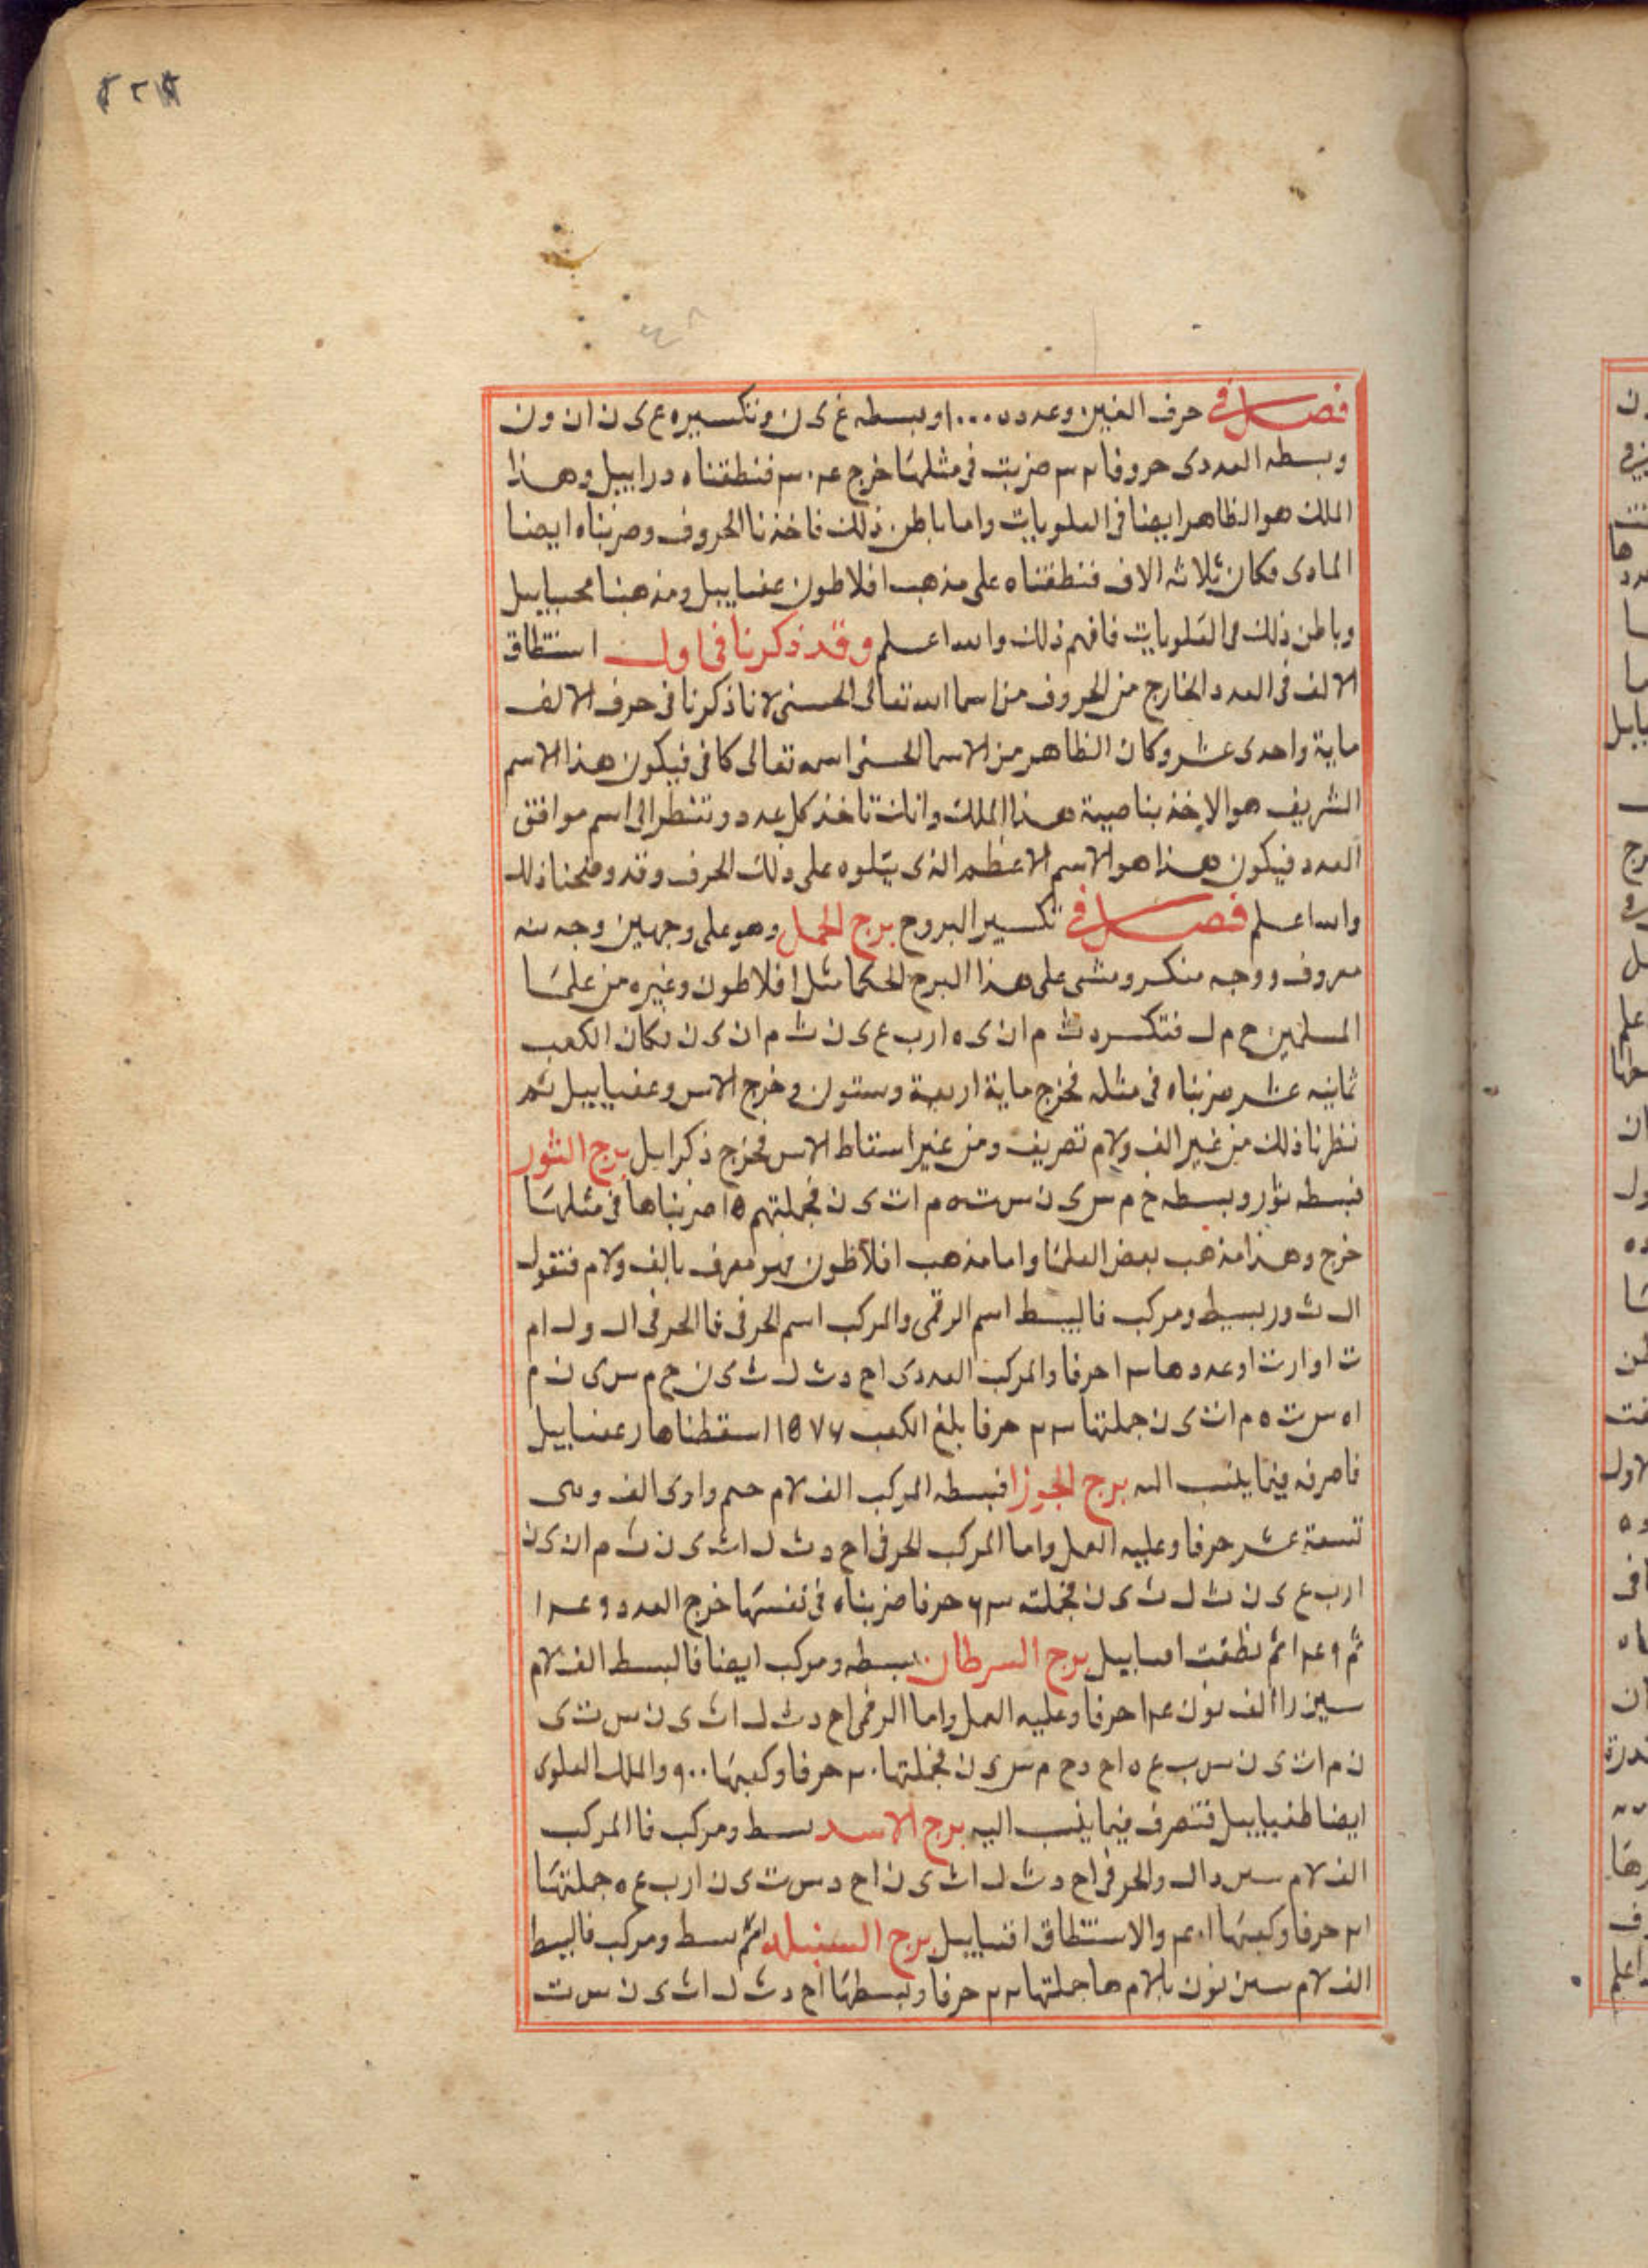 فصل في حرف الغين وعدده ١٠٠٠ وبسطه غ ى ن وتكسيره ع ى ن ا ن و ن
وبسطه العددى حروفا ضربت فى مثلها خرج فنطقناه دراييل وهذا
الملك هو الظاهر ايضا فى العلويات واما باطن ذلك فاخذنا الحروف وضربناه ايضا
المادى فكان ثلاثه الاف فنطقناه على مذهب افلاطون عفياييل ومذهبنا
وباطن ذلك فى العلويات فافهم ذلك والله اعلم وقد ذكرنا فى اول استنطاق
الالف فى العدد الخارج من الحروف من اسما الله تعالى الحسنى لانا ذكرنا فى حرف الالف
ماية واحدى عشر وكان الظاهر من الاسما الحسنى اسمه تعالى كافى فيكون هذا الاسم
الشريف هو الاخذ بناصية هذا الملك وانك تاخذ كل عدد وتنظر الى اسم موافق
العدد فيكون هذا هو الاسم الاعظم الذى يتلوه على ذلك الحرف وقد وضحنا ذلك
والله اعلم فصل في تكسير البروج برج الحمل وهو على وجهين وجه منه
معروف ووجه منكر ومشى على هذا البرج الحكما مثل افلاطون وغيره من علما
المسلمين ح م ل فتكسره ث م ا ن ى ه ا ر ب ع ى ن ث م ا ن ى ن فكان الكعب
ثمانيه عشر ضربناه فى مثله فخرج ماية اربعة وستون وخرج الاس وعفياييل ثم
نظرنا ذلك من غير الف ولام تصريف ومن غير اسقاط الاس فخرج ذكراييل برج الثور
فبسطه ثور وبسطه خ م س ى ن س ت ه م ا ت ى ن فجملتهم ١٥ ضربناها فى مثلها
خرج وهذا مذهب بعض العلما واما مذهب افلاطون فهو معرف بالف ولام فتقول
ال ث و ر بسيط ومركب فالبسط اسم الرقمى والمركب اسم الحرفى فالحرفى ال ول ام
ث ا و ا ر ث ا وعددها حرفا والمركب العددى ا ح د ث ل ث ى ن خ م س ى ن م
ا ه س ت ه م ا ت ى ن جملتها حرفا بلغ الكعب اسقطناها رعفياييل
فاصرفه فيما ينسب اليه برج الجوزا فبسطه المركب الف لام جيم واو زى الف وهى
تسعة عشر حرفا وعليه العمل واما المركب الحرفى ا ح د ث ل ا ث ى ن ث م ا ن ى ن
ا ر ب ع ى ن ث ل ث ى ن فجملته حرفا ضربناه فى نفسها خرج العدد
ثم ثم نطقت برج السرطان بسطه ومركب ايضا فالبسط الف لام
سين را الف نون حرفا وعليه العمل واما الرقمى ا ح د ث ل ا ث ى ن س ت ى
ن م ا ت ى ن س ب ع ه ا ح د ح م س ى ن فجملتها ٣٠ حرفا وكعبها ٩٠٠ والملك العلوى
ايضا طفياييل فتصرف فيما ينسب اليه برج الاسد بسط ومركب فالمركب
الف لام سين دال والحرفى ا ح د ث ل ا ث ى ن ا ح د س ت ى ن ا ر ب ع ه جملتها
حرفا وكعبها والاستنطاق برج السنبله بسط ومركب فالبسط
الف لام سين نون با لام ها جملتها حرفا وبسطها ا ح د ث ل ا ث ى ن س ت